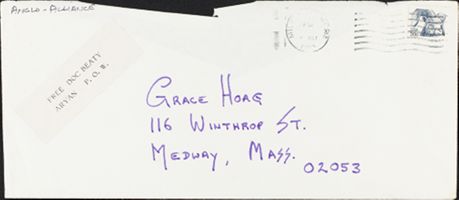 ANGLO-ALLIANCE
FREE DOC BEATY
ARYAN P.O.W.
GRACE HOAG
116 WINTHROP ST.
MEDWAY, MASS.
02053